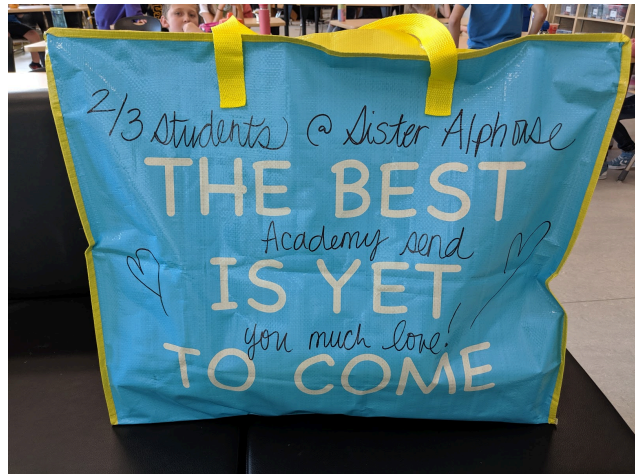 2/3 students @ Sister Alphonse
THE BEST
Academy send
IS YET
you much love!
TO COME